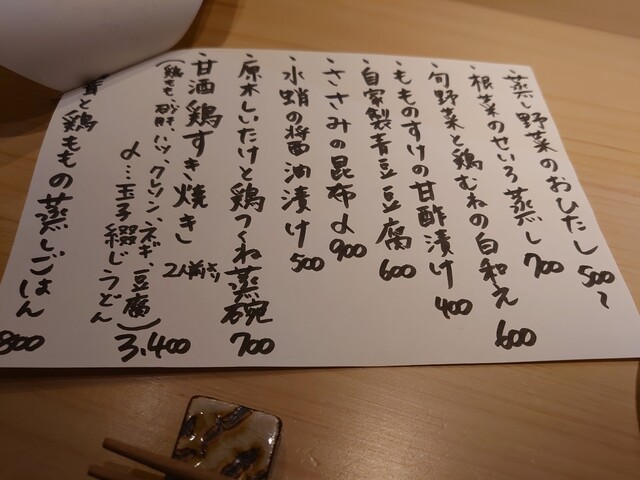 ・蒸し野菜のおひたし 500〜
・根菜のせいろ蒸し 700
・旬野菜と鶏むねの白和え 600
・もものすけの甘酢漬け 400
・自家製青豆豆腐 600
・ささみの昆布〆 900
・水蛸の醤油漬け 500
・原木しいたけと鶏つくね蒸碗 700
・甘酒鶏すき焼き 2人前より
(鶏もも、砂肝、ハツ、クレソン、ネギ、豆腐) 3,400
〆…玉子綴じうどん
と鶏ももの蒸しごはん 800